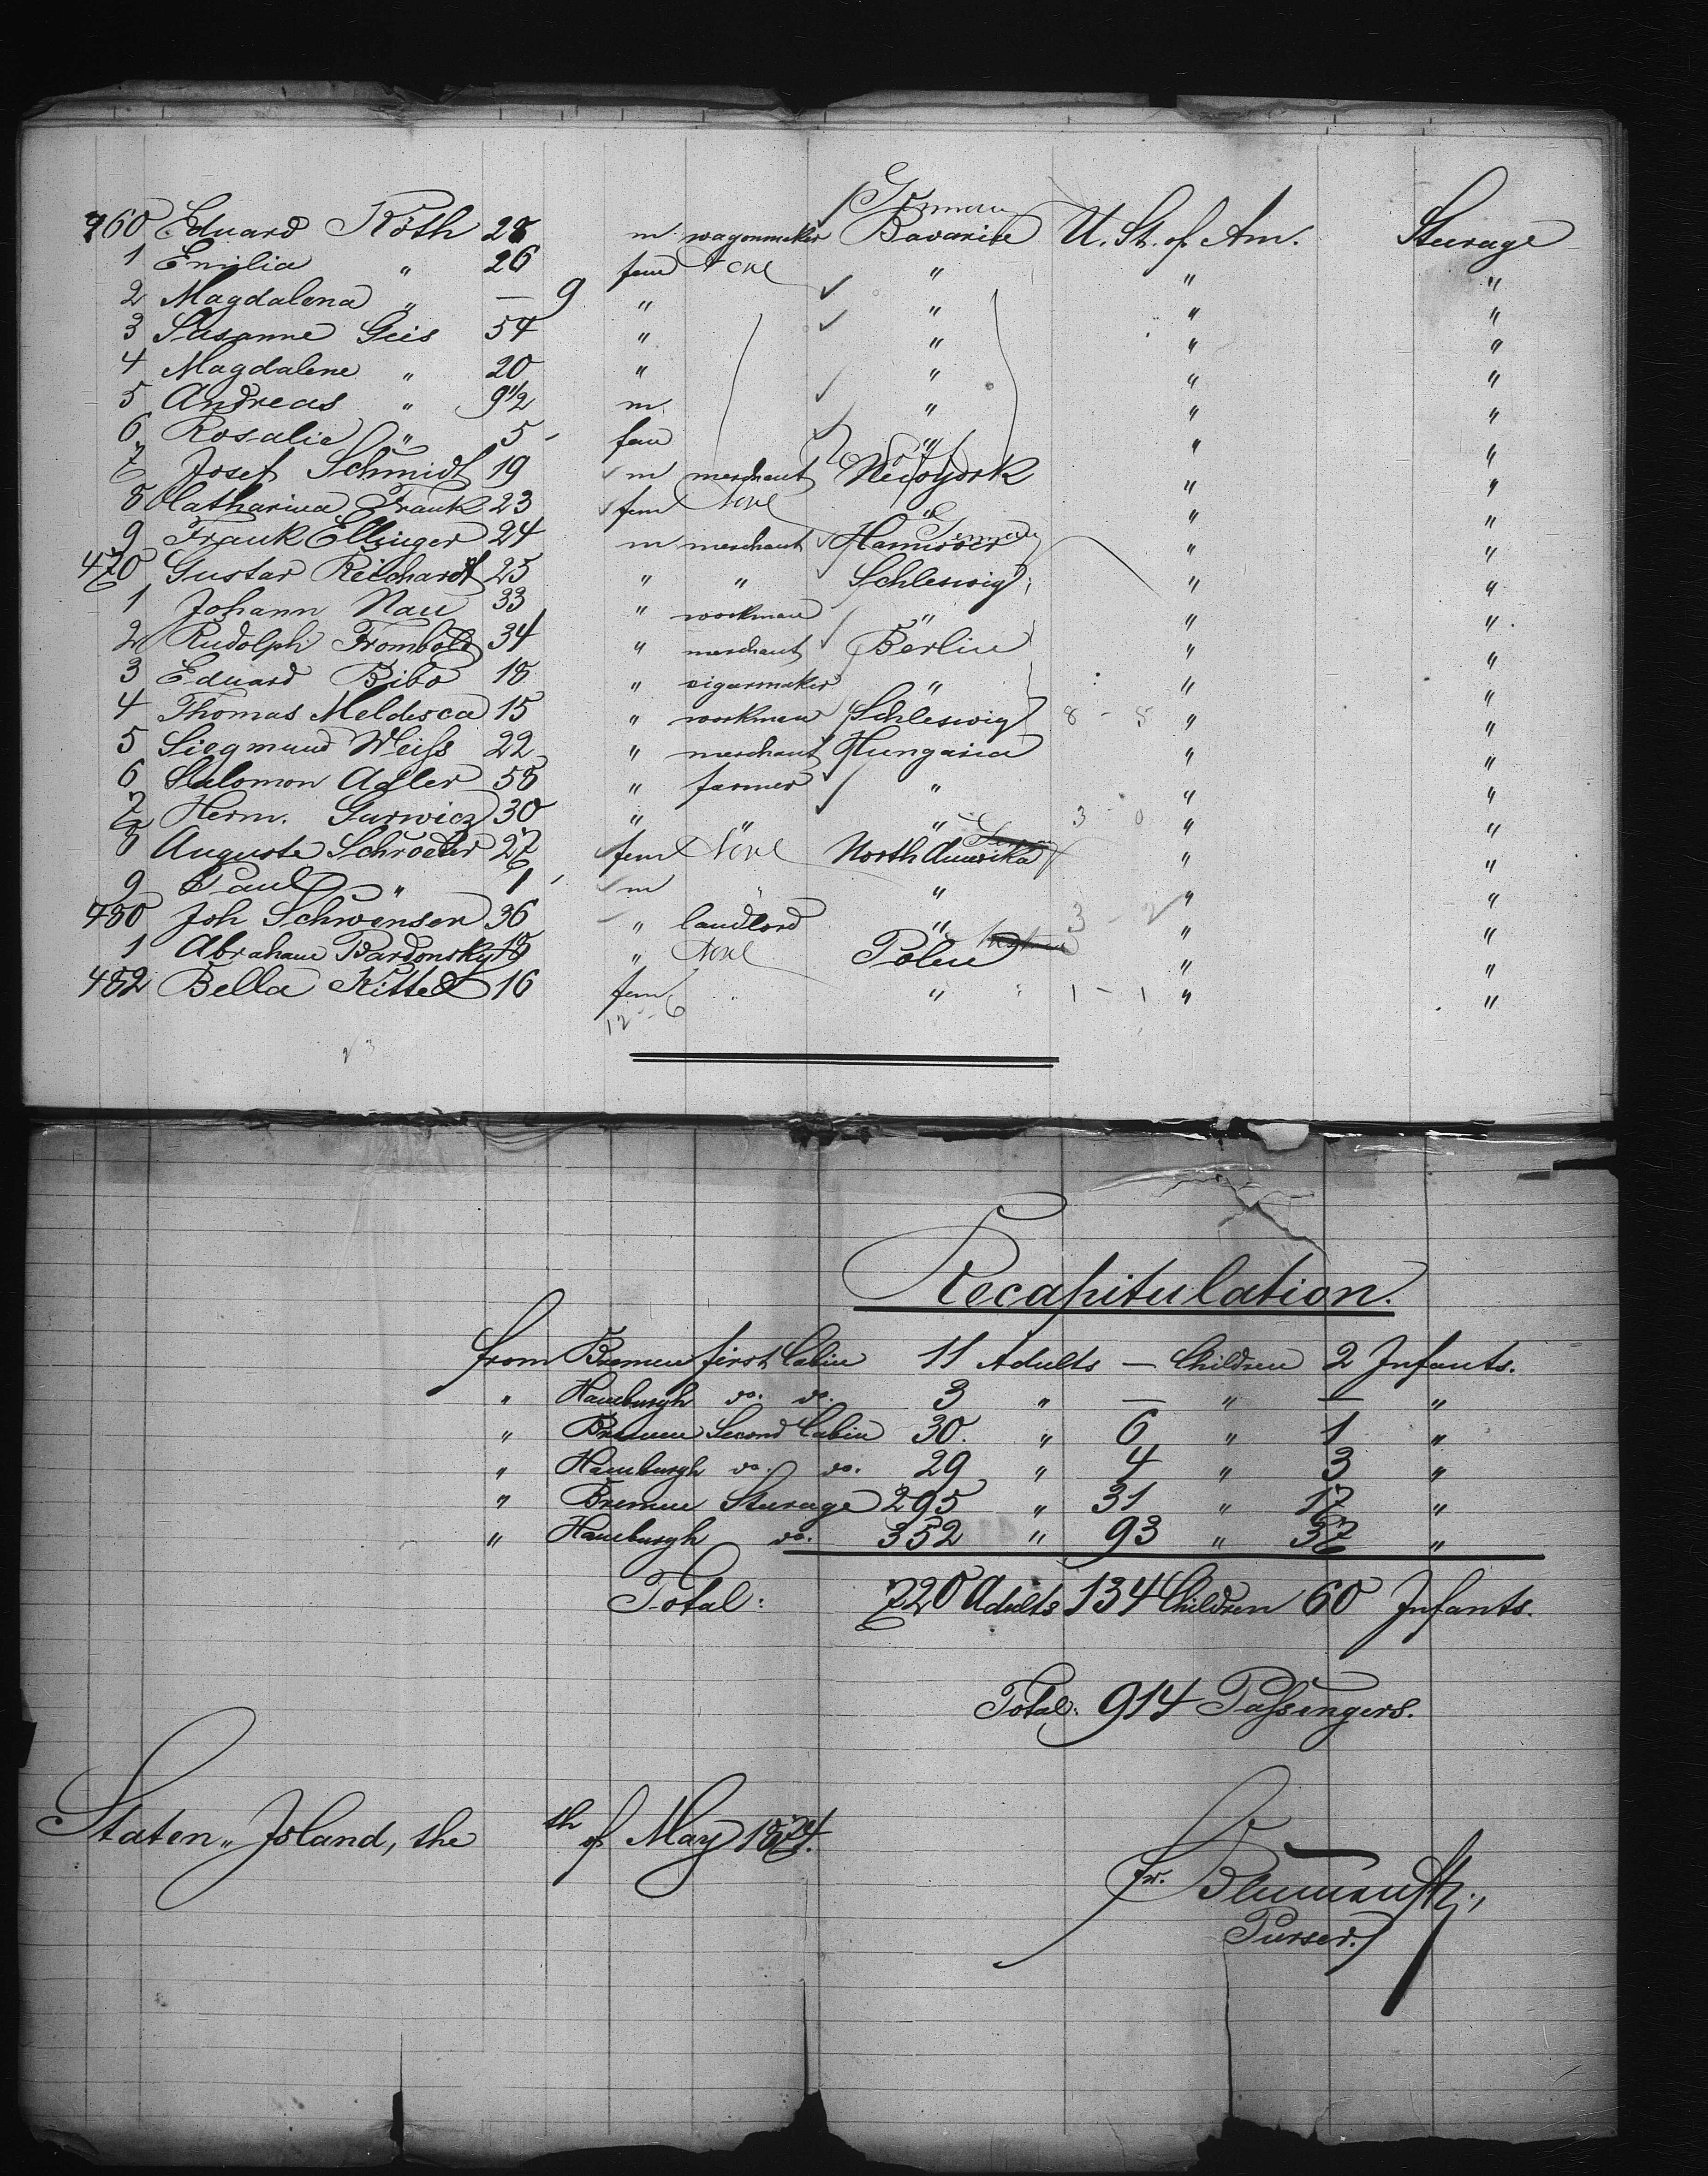 German
460 Eduard Röth 28 m wagonmaker Bavaria U. St. of Am. Steerage
1 Emilia " 26 fem None " " "
2 Magdalena " — 9 " " " "
3 Susanne Geis 54 " " " "
4 Magdalene " 20 " " " "
5 Andreas " 9 1/2 m " " "
6 Rosalia " 5 fem " " "
7 Josef Schmidt 19 m merchant New York " "
8 Catharina Frank 23 fem None " " "
German
9 Frank Ellinger 24 m merchant Hannover " "
470 Gustav Reichardt 25 " " Schleswig " "
1 Johann Nau 33 " workman " " "
2 Rudolph Frombold 34 " merchant Berlin " "
3 Eduard Bibo 18 " cigarmaker " " "
4 Thomas Meldesca 15 " workman Schleswig 8 - 5 " "
5 Siegmund Weifs 22 " merchant Hungaria " "
6 Salomon Adler 58 " farmer " " "
7 Herm. Gurwicz 30 " " " 3 0 " "
8 Auguste Schroeder 27 fem None North Amerika " "
9 Paul " 1 m " " "
480 Joh Schwensen 36 " landlord " 3 - 2 " "
1 Abraham Bardonsky 18 " None Polen " "
482 Bella Kittel 16 fem " " 1 - 1 " "
12 - 6
23
Recapitulation.
from Bremen first Cabin 11 Adults — Children 2 Infants.
" Hamburgh do. do. 3 " — " — "
" Bremen Second Cabin 30. " 6 " 1 "
" Hamburgh do. do. 29 " 4 " 3 "
" Bremen Sterage 295 " 31 " 17 "
" Hamburgh do. 352 " 93 " 37 "
Total: 720 Adults 134 Children 60 Infants.
Total: 914 Passengers.
Staten Island, the th of May 1874.
Fr.
Purser.